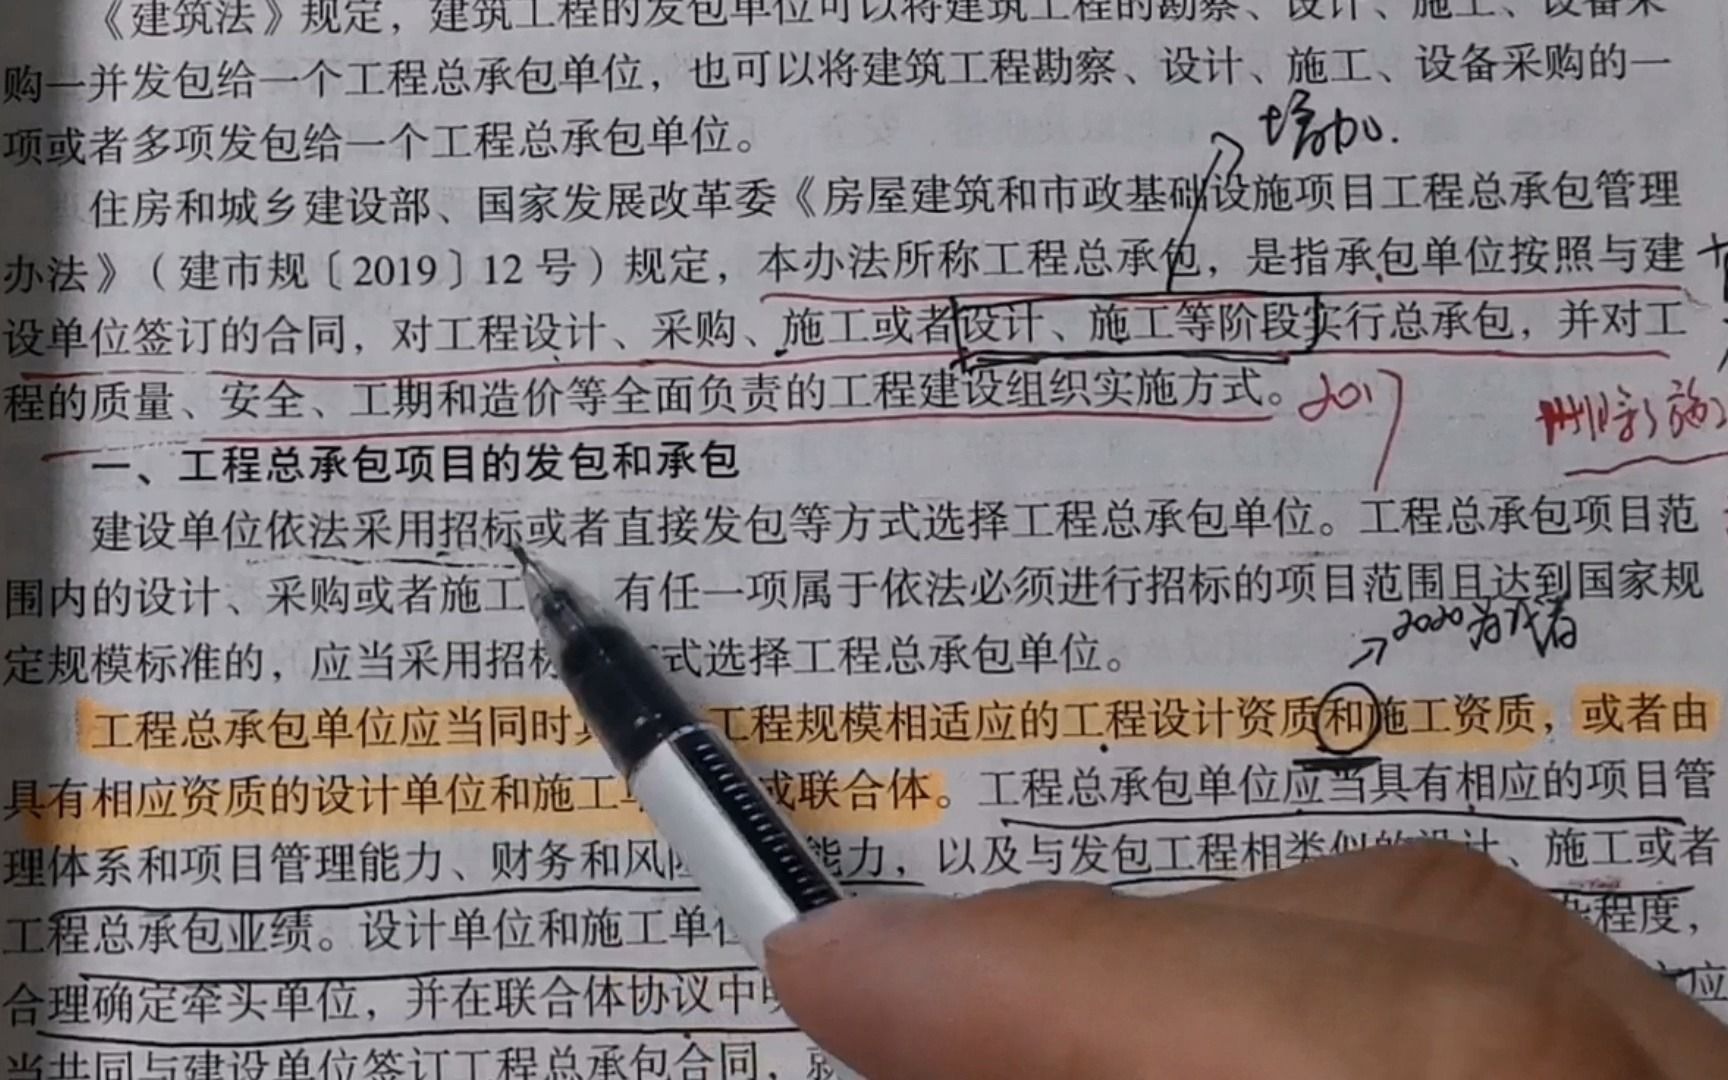 《建筑法》规定，建筑工程的发包单位可以将建筑工程的勘察、设计、施工、设备采
购一并发包给一个工程总承包单位，也可以将建筑工程勘察、设计、施工、设备采购的一
增加.
项或者多项发包给一个工程总承包单位。
住房和城乡建设部、国家发展改革委《房屋建筑和市政基础设施项目工程总承包管理
办法》（建市规〔2019〕12号）规定，本办法所称工程总承包，是指承包单位按照与建
设单位签订的合同，对工程设计、采购、施工或者设计、施工等阶段实行总承包，并对工
程的质量、安全、工期和造价等全面负责的工程建设组织实施方式。
2017
删除了施工
一、工程总承包项目的发包和承包
建设单位依法采用招标或者直接发包等方式选择工程总承包单位。工程总承包项目范
围内的设计、采购或者施工 有任一项属于依法必须进行招标的项目范围且达到国家规
2020为或者
定规模标准的，应当采用招标 式选择工程总承包单位。
工程总承包单位应当同时 工程规模相适应的工程设计资质和施工资质，或者由
具有相应资质的设计单位和施工 或联合体。工程总承包单位应当具有相应的项目管
理体系和项目管理能力、财务和风险 能力，以及与发包工程相类似的设计、施工或者
工程总承包业绩。设计单位和施工单位 程度，
合理确定牵头单位，并在联合体协议中 应
当共同与建设单位签订工程总承包合同，就